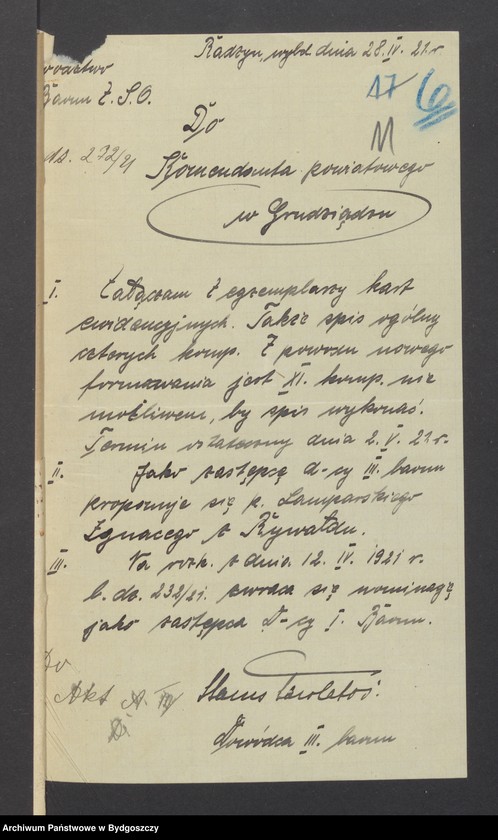 Radzyn, wybd. dnia 28.IV. 21. r.
Baonu Z. S. O.
dz. 272/21
17
6
11
Do
Komendanta powiatowego
w Grudziądzu
I. Załączam 2 egzemplarzy kart
ewidencyjnych. Także spis ogólny
czterych komp. Z powodu nowego
formowania jest XI. komp. nie
możliwem, by spis wykonać.
Termin ostateczny dnia 2. V. 21. r.
II. Jako zastępcę d-cy III. baonu
proponuje się p. Lamparskiego
Ignacego z Rywałdu.
III. Na rozk. z dnia 12. IV. 1921 r.
l. dz. 232/21. zwraca się nominację
jako zastępca D-cy I. Baonu.
Do
Akt
Dowódca III. baonu
Archiwum Państwowe w Bydgoszczy